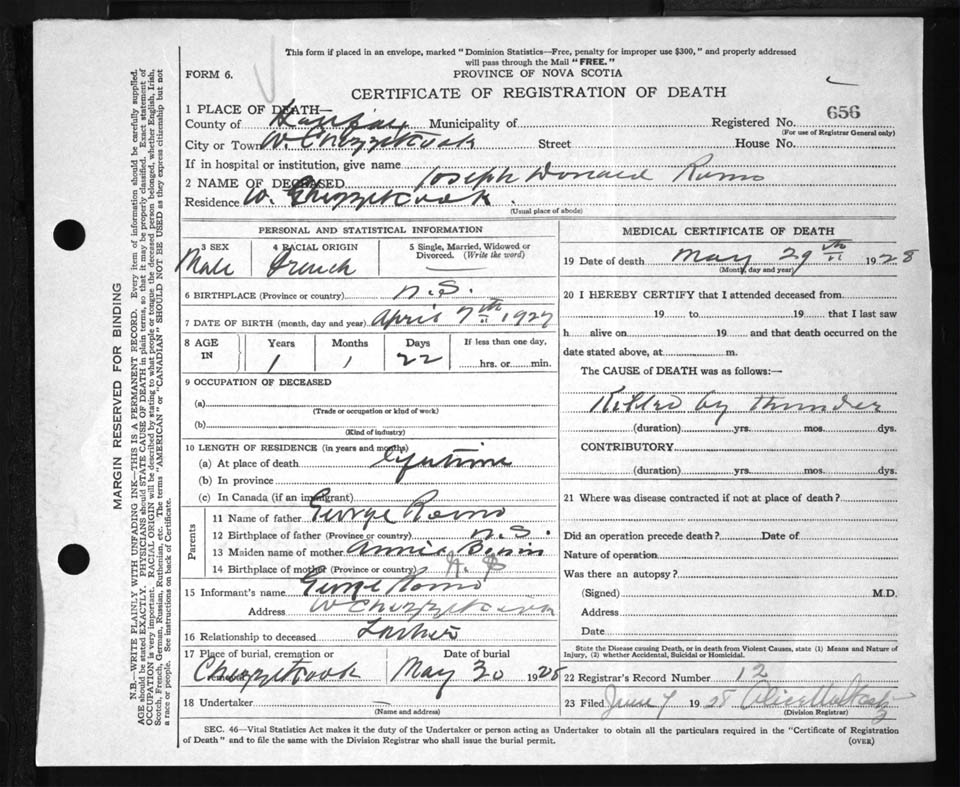 This form if placed in an envelope, marked "Dominion Statistics—Free, penalty for improper use $300," and properly addressed
will pass through the Mail "FREE."
FORM 6.
PROVINCE OF NOVA SCOTIA
CERTIFICATE OF REGISTRATION OF DEATH
1 PLACE OF DEATH—
County of Halifax Municipality of Registered No. 656
(For use of Registrar General only)
City or Town W. Chezzetcook Street House No.
If in hospital or institution, give name
2 NAME OF DECEASED Joseph Donald Romo
Residence W. Chezzetcook.
(Usual place of abode)
PERSONAL AND STATISTICAL INFORMATION
3 SEX Male
4 RACIAL ORIGIN French
5 Single, Married, Widowed or Divorced. (Write the word)
6 BIRTHPLACE (Province or country) N.S.
7 DATE OF BIRTH (month, day and year) April 7th 1927
8 AGE IN Years 1 Months 1 Days 22 If less than one day, hrs. or min.
9 OCCUPATION OF DECEASED
(a)
(Trade or occupation or kind of work)
(b)
(Kind of industry)
10 LENGTH OF RESIDENCE (in years and months)
(a) At place of death lifetime
(b) In province
(c) In Canada (if an immigrant)
Parents
11 Name of father George Romo
12 Birthplace of father (Province or country) N.S.
13 Maiden name of mother Annie
14 Birthplace of mother (Province or country) N.S
15 Informant's name George Romo
Address W Chezzetcook
16 Relationship to deceased Father
17 Place of burial, cremation or removal Chezzetcook
Date of burial May 30 1928
18 Undertaker
(Name and address)
MEDICAL CERTIFICATE OF DEATH
19 Date of death May 29th 1928
(Month, day and year)
20 I HEREBY CERTIFY that I attended deceased from
19 to 19 that I last saw
h alive on 19 and that death occurred on the
date stated above, at m.
The CAUSE of DEATH was as follows:—
Killed by thunder
(duration) yrs. mos. dys.
CONTRIBUTORY
(duration) yrs. mos. dys.
21 Where was disease contracted if not at place of death?
Did an operation precede death? Date of
Nature of operation
Was there an autopsy?
(Signed) M.D.
Address
Date
State the Disease causing Death, or in death from Violent Causes, state (1) Means and Nature of
Injury, (2) whether Accidental, Suicidal or Homicidal.
22 Registrar's Record Number 12
23 Filed June 7 1928
(Division Registrar)
SEC. 46—Vital Statistics Act makes it the duty of the Undertaker or person acting as Undertaker to obtain all the particulars required in the "Certificate of Registration
of Death" and to file the same with the Division Registrar who shall issue the burial permit.
(OVER)
MARGIN RESERVED FOR BINDING
N.B.—WRITE PLAINLY WITH UNFADING INK—THIS IS A PERMANENT RECORD. Every item of information should be carefully supplied.
AGE should be stated EXACTLY. PHYSICIANS should STATE CAUSE OF DEATH in plain terms, so that it may be properly classified. Exact statement of
OCCUPATION is very important. RACIAL ORIGIN will be described by stating to what people or tongue the deceased person belonged, whether English, Irish,
Scotch, French, German, Russian, Ruthenian, etc. The terms "AMERICAN" or "CANADIAN" SHOULD NOT BE USED as they express citizenship but not
a race or people. See instructions on back of Certificate.